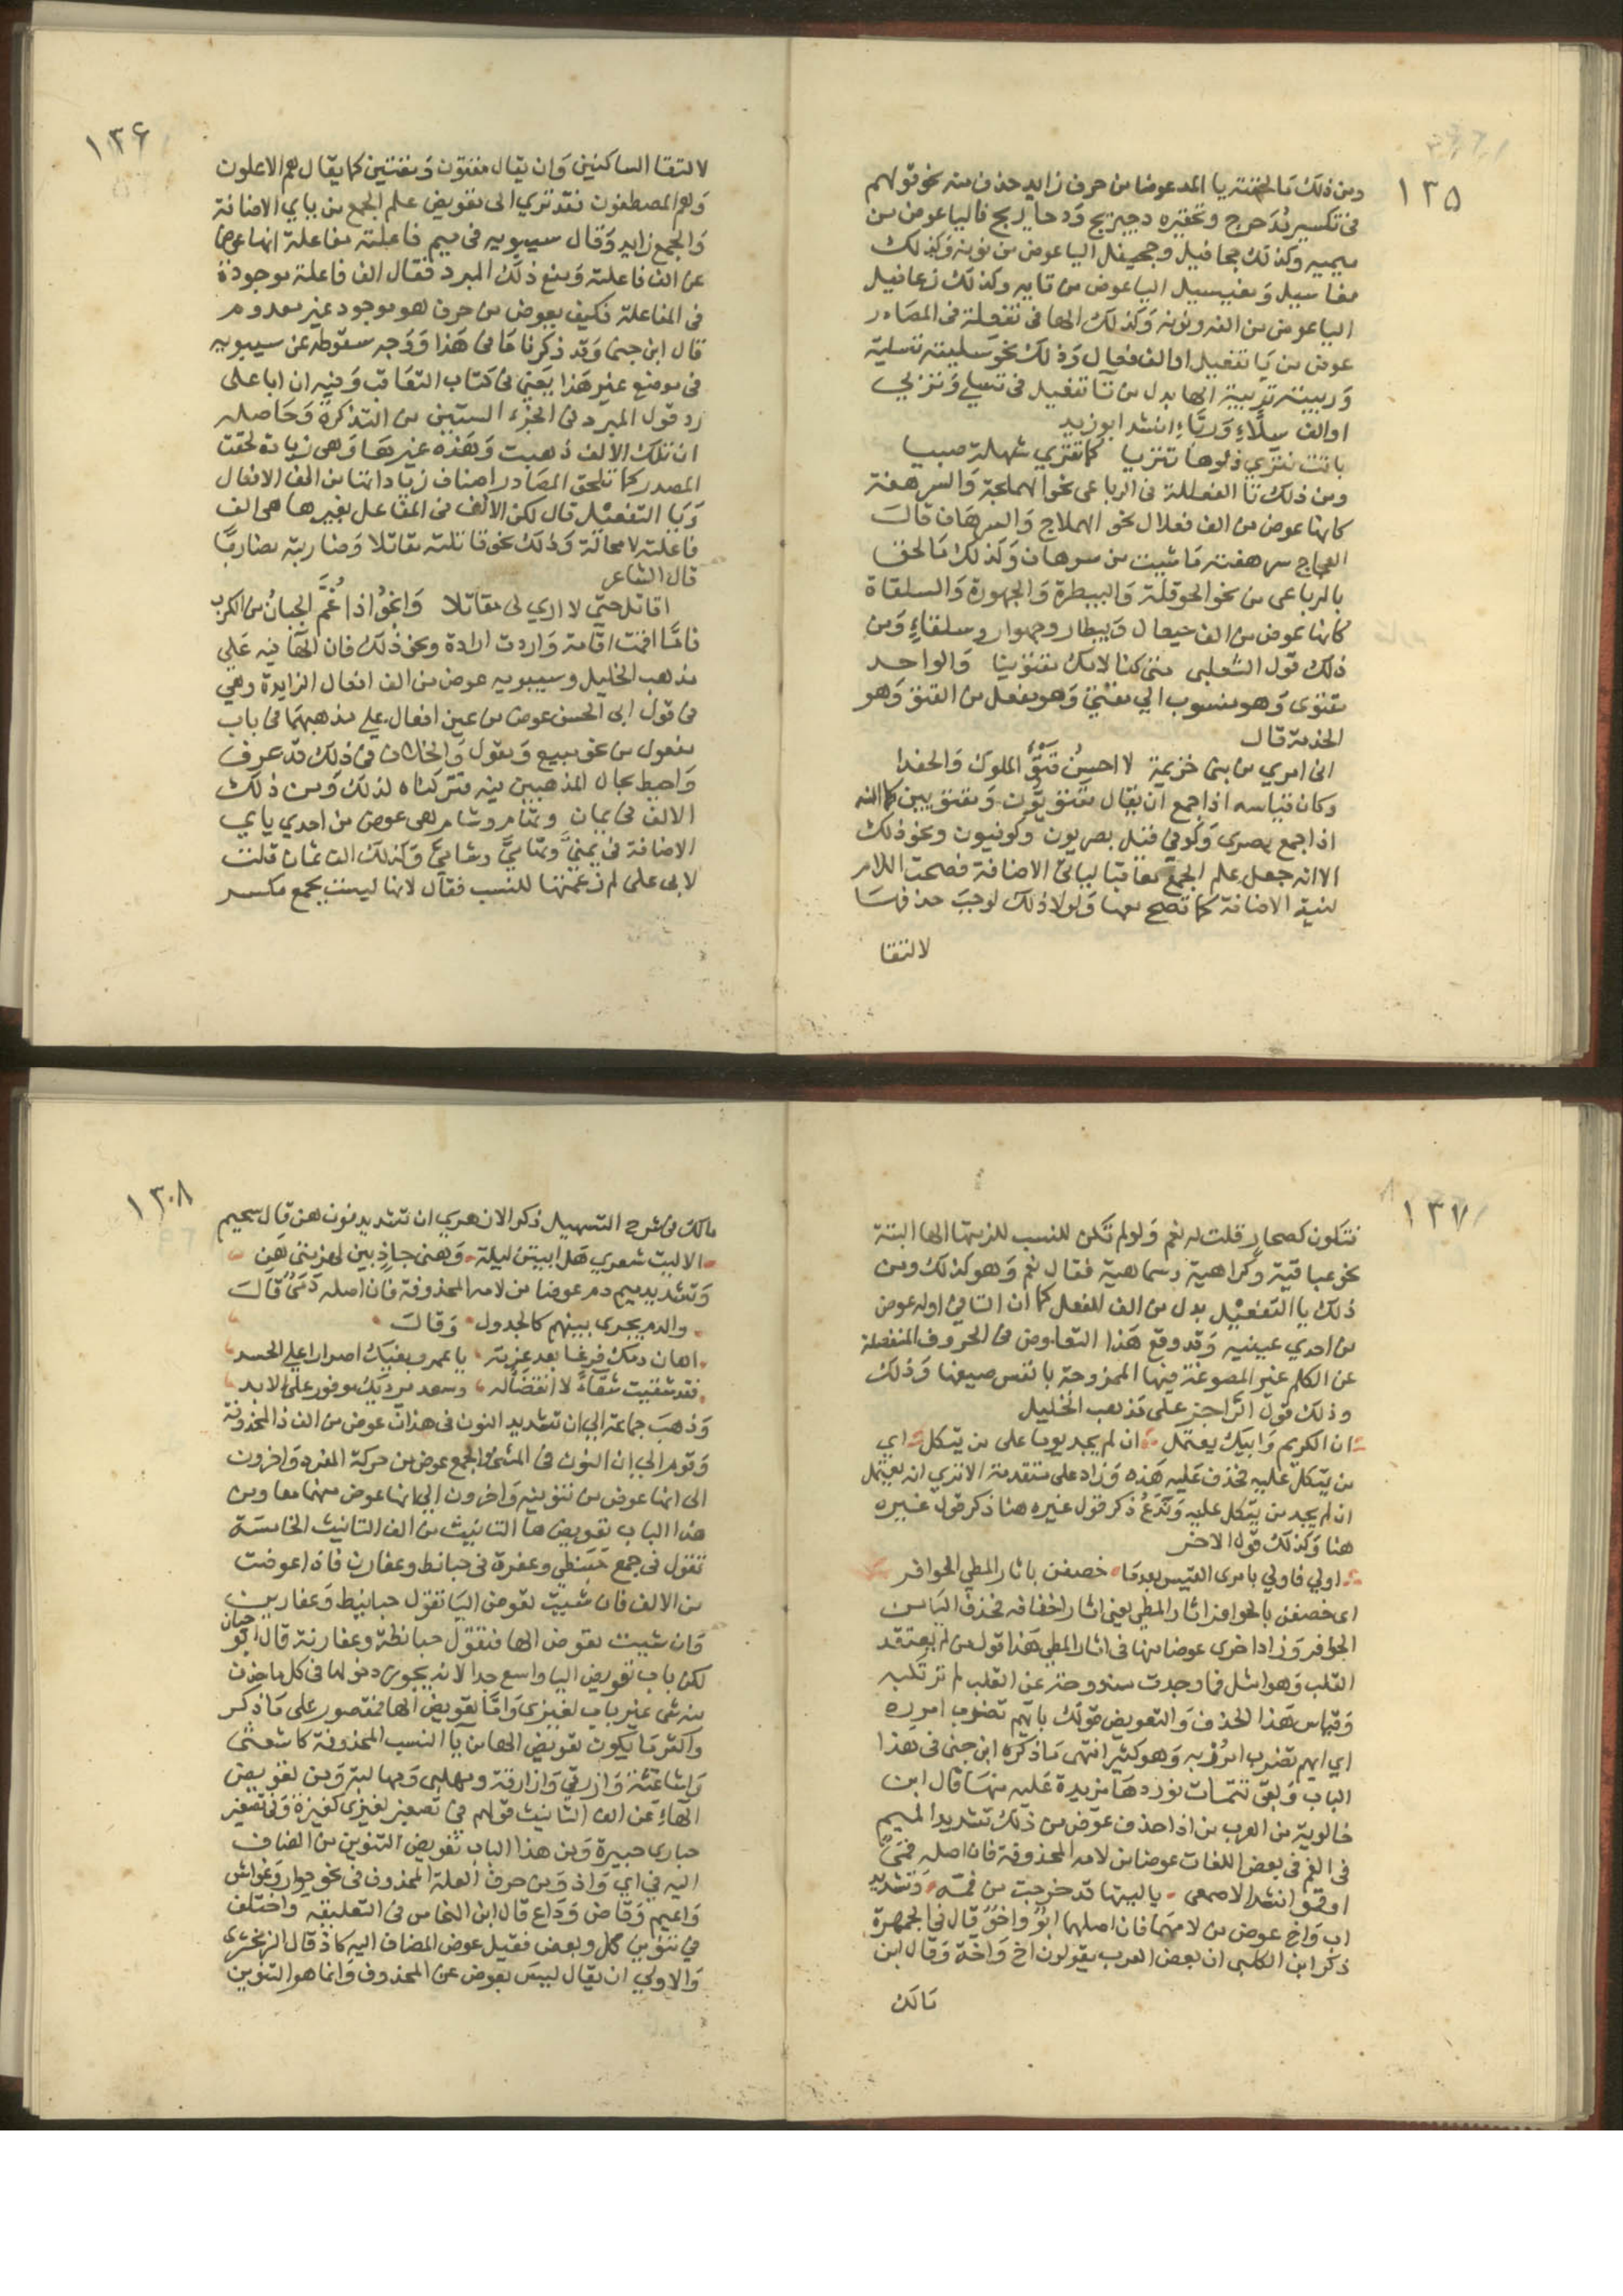 ١٣٥
ومن ذلك ما لحقته يا المد عوضا من حرف زايد حذف منه نحو قولهم
فى تكسير مدحرج وتحقيره دحيريج ودحاريج فاليا عوض من
ميمه وكذلك جحافيل وجحيفيل اليا عوض من نونه وكذلك
مغاسيل ومغيسيل اليا عوض من تايه وكذلك زعافيل
اليا عوض من الفه ونونه وكذلك الها فى تفعلة فى المصادر
عوض من يا تفعيل او الف فعال وذلك نحو سليته تسلية
وربيته تربية الها بدل من يا تفعيل فى تسلي وتربي
او الف سلاء ورباء انشد ابو زيد
باتت تنزي دلوها تنزيا كما تنزي شهلة صبيا
ومن ذلك تا الفعللة فى الرباعى نحو الهملجة والسرهفة
كانها عوض من الف فعلال نحو الهملاج والسرهاف قال
العجاج سرهفته ما شيت من سرهاف وكذلك ما لحق
بالرباعى من نحو الحوقلة والبيطرة والجهورة والسلقاة
كانها عوض من الف حيقال وبيطار وجهوار وسلقاء ومن
ذلك قول التغلبى متى كنا لامك مقتوينا والواحد
مقتوى وهو منسوب الي مقتى وهو مفعل من القتو وهو
الخدمة قال
انى امري من بنى خزيمة لا احسن قتو الملوك والحفدا
وكان قياسه اذا جمع ان يقال مقتويون ومقتويين كما انه
اذا جمع بصرى وكوفي قيل بصريون وكوفيون ونحو ذلك
الا انه جعل علم الجمع معاقبا لياى الاضافة فصحت اللام
لنية الاضافة كما تصح معها ولولا ذلك لوجب حذفها
لالتقا
١٣٦
لالتقا الساكنين وان يقال مقتون ومقتين كما يقال هم الاعلون
وهم المصطفون فقد تري الى تعويض علم الجمع من ياي الاضافة
والجمع زايد وقال سيبويه فى ميم فاعلته مفاعلة انها عوض
عن الف فاعلته ومنع ذلك المبرد فقال الف فاعلة موجودة
فى المفاعلة فكيف يعوض من حرف هو موجود غير معدوم
قال ابن جنى وقد ذكرنا ما فى هذا ووجه سقوطه عن سيبويه
فى موضع غير هذا يعني فى كتاب التعاقب وفيه ان ابا على
رد قول المبرد فى الجزء الستين من التذكرة وحاصله
ان تلك الالف ذهبت وهذه غيرها وهى زيادة لحقت
المصدر كما تلحق المصادر اصناف زياداتها من الف الافعال
ويا التفعيل قال لكن الالف فى المفاعل بغيرها هى الف
فاعلته لا محالة وذلك نحو قاتلته مقاتلا وضاربته مضاربا
قال الشاعر
اقاتل حتي لا اري لى مقاتلا وانجو اذا غم الجبان من الكرب
فاما اقمت اقامة واردت ارادة ونحو ذلك فان الها فيه على
مذهب الخليل وسيبويه عوض من الف افعال الزايدة وهي
فى قول ابى الحسن عوض من عين افعال على مذهبهما فى باب
مفعول من نحو مبيع ومقول والخلاف فى ذلك قد عرف
واحيط بحال المذهبين فيه فتركناه لذلك ومن ذلك
الالف فى يمان وتهام وشام هى عوض من احدي ياي
الاضافة فى يمني وتهامي وشامي وكذلك الف ثمان قلت
لابى على لم زعمتها للنسب فقال لانها ليست بجمع مكسر
١٣٧
فتكون كصحار قلت له نعم ولو لم تكن للنسب للزمتها الها البتة
نحو عباقية وكراهية وسباهية فقال نعم وهو كذلك ومن
ذلك يا التفعيل بدل من الف الفعل كما ان التا في اوله عوض
من احدي عينيه وقد وقع هذا التعاوض فى الحروف المنفصلة
عن الكلم غير المصوغة فيها الممزوجة بانفس صيغها وذلك
وذلك قول الراجز على مذهب الخليل
ان الكريم وابيك يعتمل ان لم يجد يوما على من يتكل اي
من يتكل عليه فحذف عليه هذه وزاد على متقدمة الا تري انه يعتمل
ان لم يجد من يتكل عليه وندع ذكر قول غيره هنا ذكر قول غيره
هنا وكذلك قول الاخر
اولي فاولي يامرى القيس بعدما خصفن باثار المطي الحوافر
اى خصفن بالحوافر اثار المطي يعنى اثار اخفافه فحذف الباء من
الحوافر وزاد اخرى عوضا منها فى اثار المطي هذا قول من لم يعتقد
القلب وهو امثل فما وجدت مندوحة عن القلب لم ترتكبه
وقياس هذا الحذف والتعويض قولك بايهم تضرب امرر
اي ايهم تضرب امرر به وهو كثير انتهى ما ذكره ابن جنى فى هذا
الباب وبقى تتمات نوردها مزيدة عليه منها قال ابن
خالويه من العرب من اذا حذف عوض من ذلك تشديد الميم
فى الفم فى بعض اللغات عوضا من لامه المحذوفة فان اصله فمي
او فمو انشد الاصمعى يا ليتها قد خرجت من فمه وتشديد
اب واخ عوض من لامهما فان اصلهما ابو واخو قال في الجمهرة
ذكر ابن الكلبى ان بعض العرب يقولون اخ واخة وقال ابن
مالك
١٣٨
مالك فى شرح التسهيل ذكر الازهري ان تشديد نون هن قال سحيم
الا ليت شعري هل ابيتن ليلة وهنى جاذ بين لهزمتي هن
وتشديد ميم دم عوضا من لامه المحذوفة فان اصله دمي قال
والدم يجرى بينهم كالجدول وقال
اهان دمك فرغا بعد عزته يا عمرو بغيك اصرارا علي الحسد
فقد شقيت شقاء لا انقضا له وسعد مرديك موفور على الابد
وذهب جماعة الي ان تشديد النون فى هذان عوض من الف ذا المحذوفة
وقوم الي ان النون فى المثنى والجمع عوض من حركة المفرد واخرون
الى انها عوض من تنوينه واخرون الي انها عوض منهما معا ومن
هذا الباب تعويض ها التانيث من الف التانيث الخامسة
تقول فى جمع حبنطي وعفرنى حبانط وعفارن فاذا عوضت
من الالف فان شيت تعوض اليا تقول حبانيط وعفارين
وان شيت تعوض الها فتقول حبانطة وعفارنة قال ابو حيان
لكن باب تعويض اليا واسع جدا لانه يجوز دخولها فى كل ما حذف
منه شى غير باب لغيزى واما تعويض الها فمقصور على ما ذكر
واكثر ما يكون تعويض الها من يا النسب المحذوفة كاشعثى
واشاعثة وازرقي وازارقة ومهلبى ومهالبة ومن تعويض
الهاء عن الف التانيث قولهم في تصغير لغيزى لغيزة وفى تصغير
حبارى حبيرة ومن هذا الباب تعويض التنوين من المضاف
اليه فى اي واذ ومن حرف العلة المحذوف فى نحو جوار وغواش
واعيم وقاض وداع قال ابن النحاس فى التعليقة واختلف
فى تنوين كل وبعض فقيل عوض المضاف اليه كاذ قال الزمخشرى
والاولي ان يقال ليس بعوض عن المحذوف وانما هو التنوين